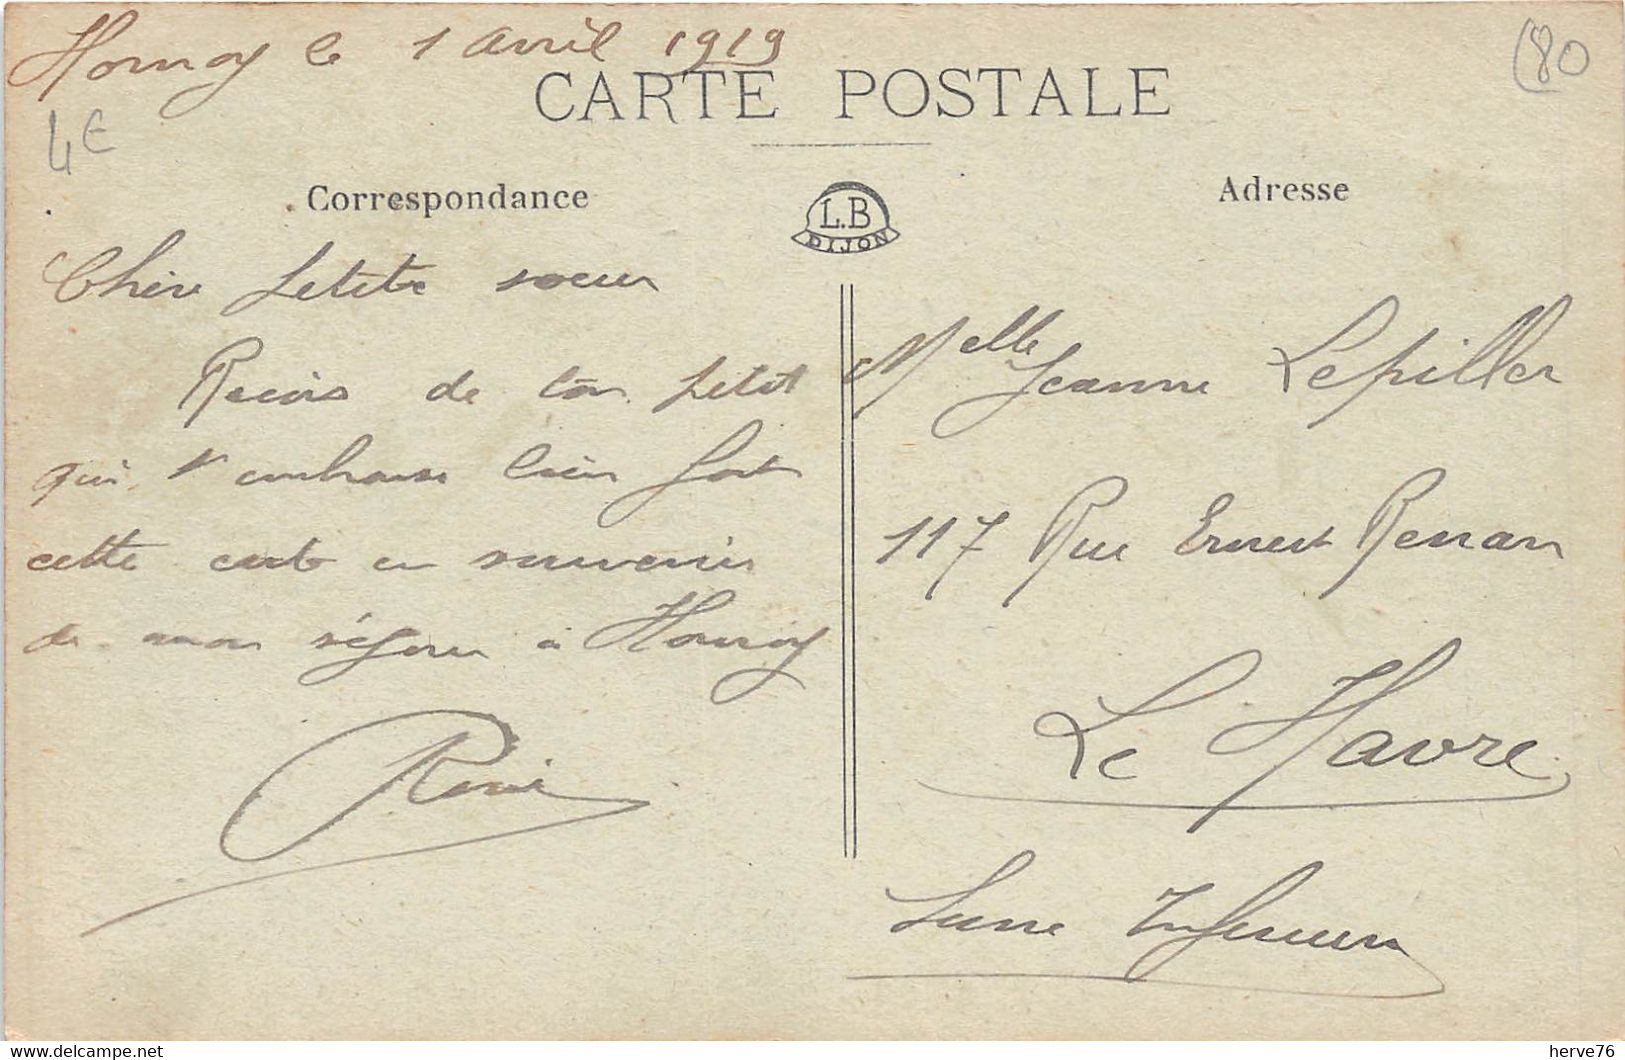 Hornoy le 1 avril 1919
(80
4€
CARTE POSTALE
Correspondance
L.B
DIJON
Adresse
Chère petite soeur
Recois de ton petit
qui t'embrasse bien fort
cette carte en souvenir
de mon séjour à Hornoy
René
Melle Jeanne Lepiller
117 Rue Ernest Renan
Le Havre
Seine Inferieure
herve76